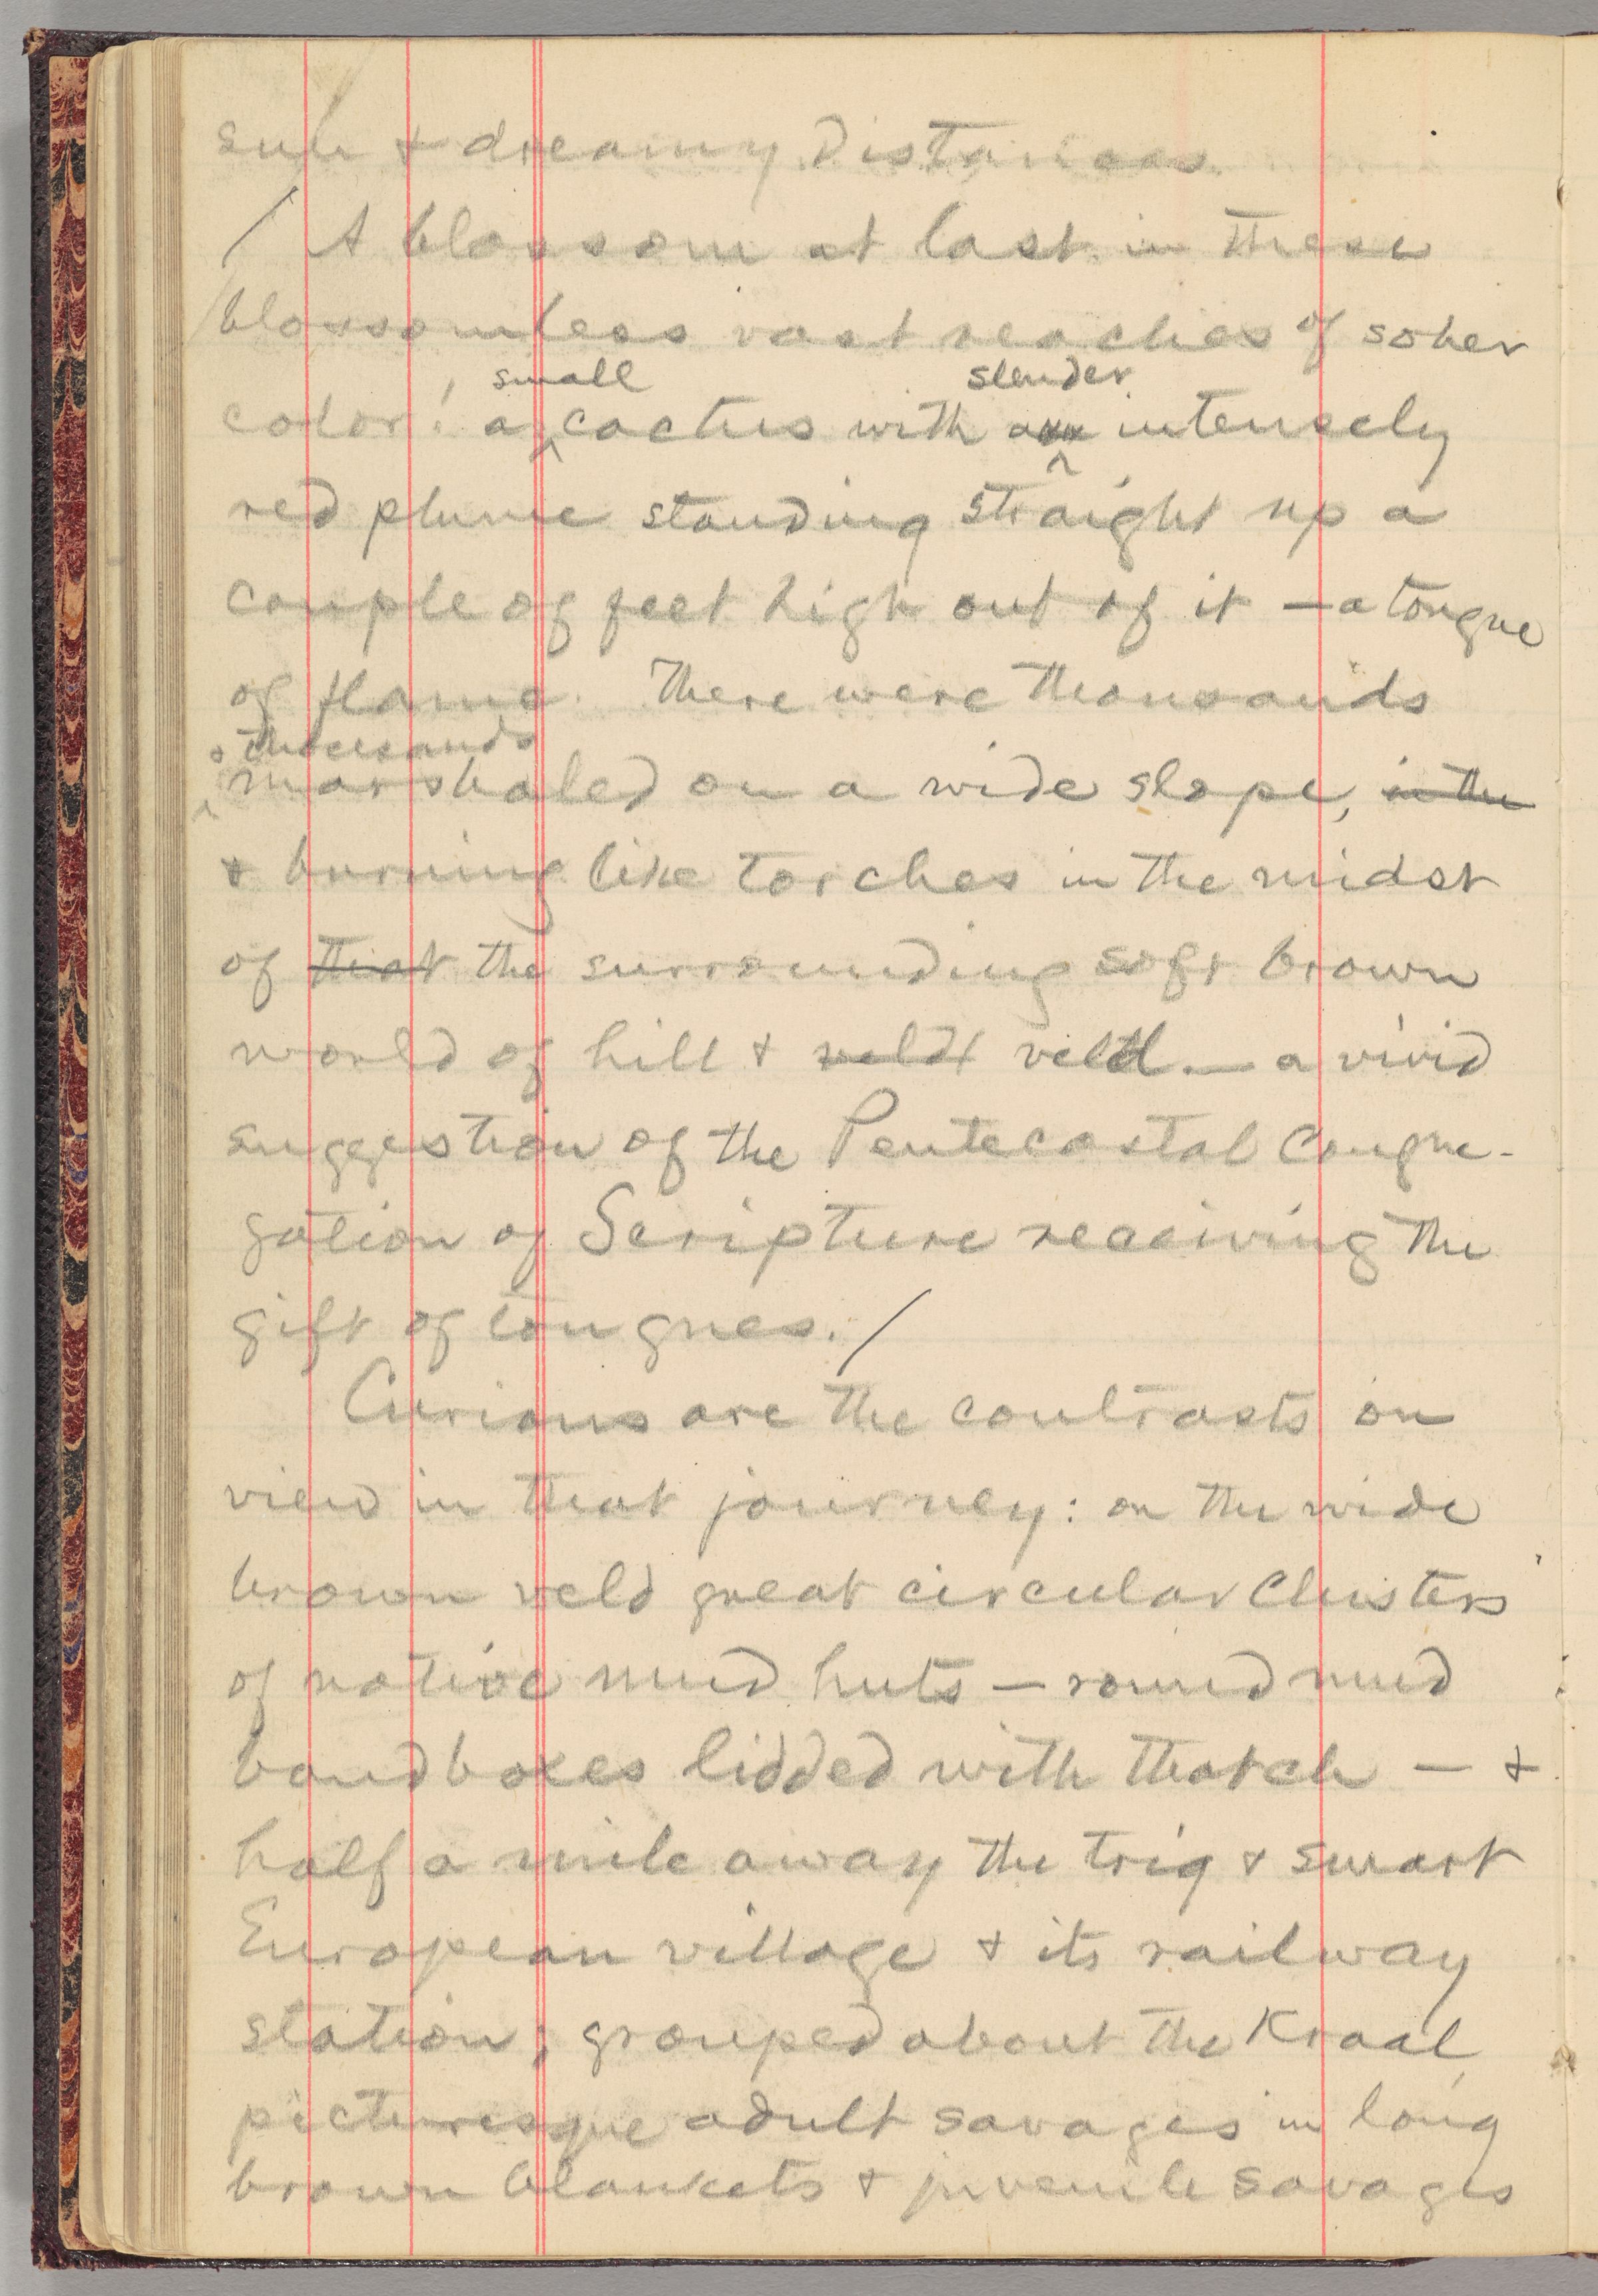 sun & dreamy distances.
/ A blossom at last in these
blossomless vast reaches of sober
color! a small cactus with a slender intensely
red plume standing straight up a
couple of feet high out of it — a tongue
of flame. There were thousands
& thousands
marshaled on a wide slope, in the
& burning like torches in the midst
of that the surrounding soft brown
world of hill & veldt veld — a vivid
suggestion of the Pentecostal Congre-
gation of Scripture receiving the
gift of tongues. /
Curious are the contrasts on
view in that journey: on the wide
brown veld great circular clusters
of native mud huts — round mud
bandboxes lidded with thatch — &
half a mile away the trig & smart
European village & its railway
station; grouped about the Kraal,
picturesque adult savages in long
brown blankets & juvenile savages